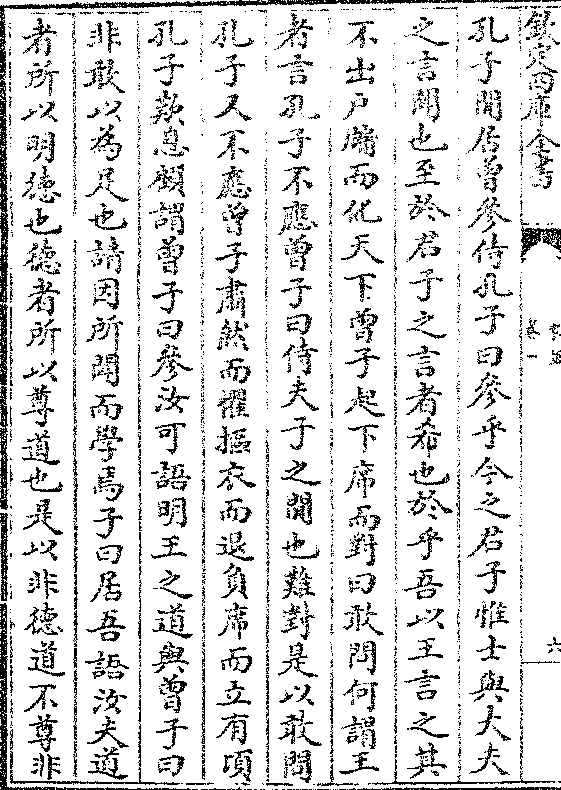 欽定四庫全書
六
孔子閒居曾參侍孔子曰參乎今之君子惟士與大夫
之言聞也至於君子之言者希也於乎吾以王言之其
不出戶牖而化天下曾子起下席而對曰敢問何謂王
者言孔子不應曾子曰侍夫子之閒也難對是以敢問
孔子又不應曾子肅然而懼摳衣而退負席而立有頃
孔子歎息顧謂曾子曰參汝可語明王之道與曾子曰
非敢以為足也請因所聞而學焉子曰居吾語汝夫道
者所以明德也德者所以尊道也是以非德道不尊非